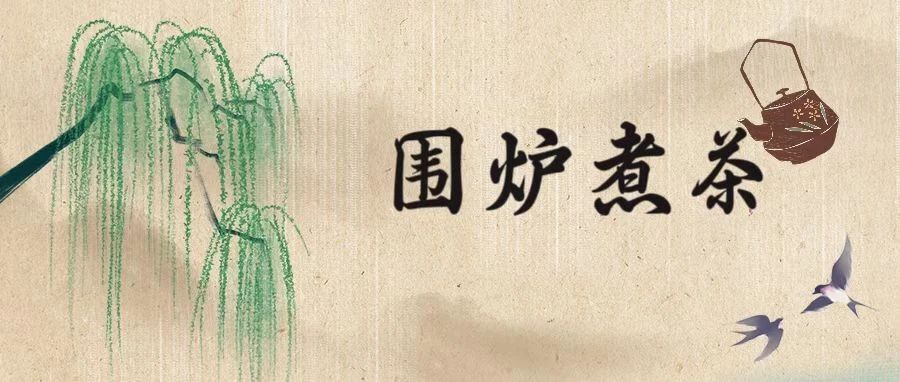 围炉煮茶